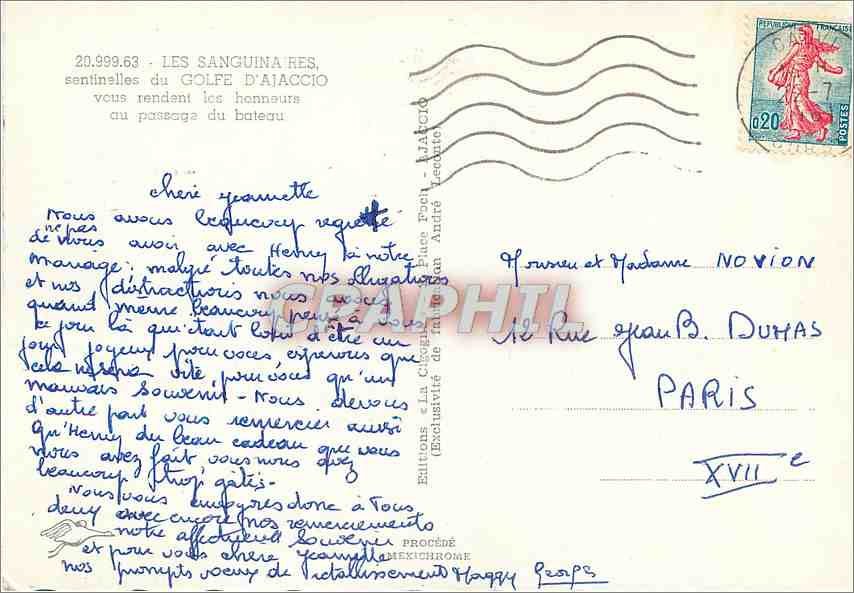 20.999.63 - LES SANGUINAIRES,
sentinelles du GOLFE D'AJACCIO
vous rendent les honneurs
au passage du bateau
REPUBLIQUE FRANÇAISE
0,20
POSTES
Editions « La Cigogne » Place Foch - AJACCIO
(Exclusivité de fabrication André Leconte)
CPAPHIL
chère Jeannette
Nous avons beaucoup regretté
ne pas
de vous avoir avec Henry à notre
mariage; malgré toutes nos
et nos distractions nous avons
quand même beaucoup pensé à vous
ce jour là qui était loin d'être un
jour joyeux pour vous, esperons que
cela ne sera vite pour vous qu'un
mauvais souvenir - Nous devons
d'autre part vous remercier aussi
qu'Henry du beau cadeau que vous
nous avez fait, vous nous avez
beaucoup trop gâtés -
Nous vous envoyons donc à Tous
deux avec encore nos remerciements
notre affectueux souvenir
et pour vous chère Jeannette
nos prompts voeux de retablissement Maggy Georges
Monsieur et Madame NOVION
12 Rue Jean B. DUMAS
PARIS
XVII e
PROCÉDÉ
MEXICHROME